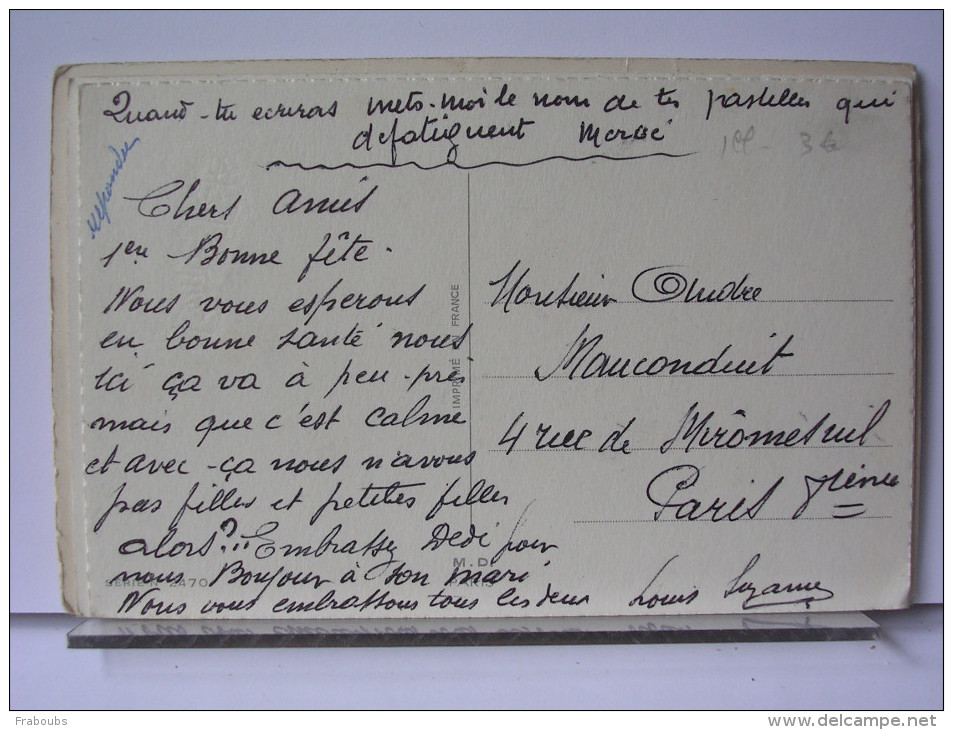 Quand-tu ecriras mets-moi le nom de tes pastelles qui
defatiguent Merci
repondu
Chers Amis
1er Bonne fête.
Nous vous esperons
en bonne santé nous
ici ça va à peu-près
mais que c'est calme
et avec-ça nous n'avons
pas filles et petites filles
alors?... Embrassez Dedé pour
nous Bonjour à son mari
Nous vous embrassons tous les deux Louis Suzanne
Monsieur André
Mauconduit
4 rue de Miromesnil
Paris 8ième
IMPRIMÉ EN FRANCE
M.D.
PARIS
SERIE N° 2470
Fraboubs
www.delcampe.net